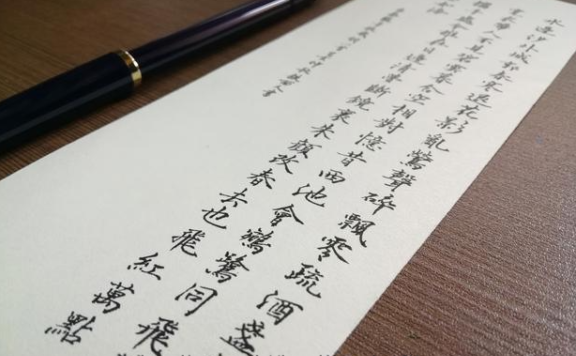 水邊沙外城郭春寒退花影亂鶯聲碎飄零疏酒盞
寬衣帶人不見碧雲暮合空相對憶昔西池會鵷鷺同飛
攜手處今誰在日邊清夢斷鏡裏朱顏改春去也飛紅萬點